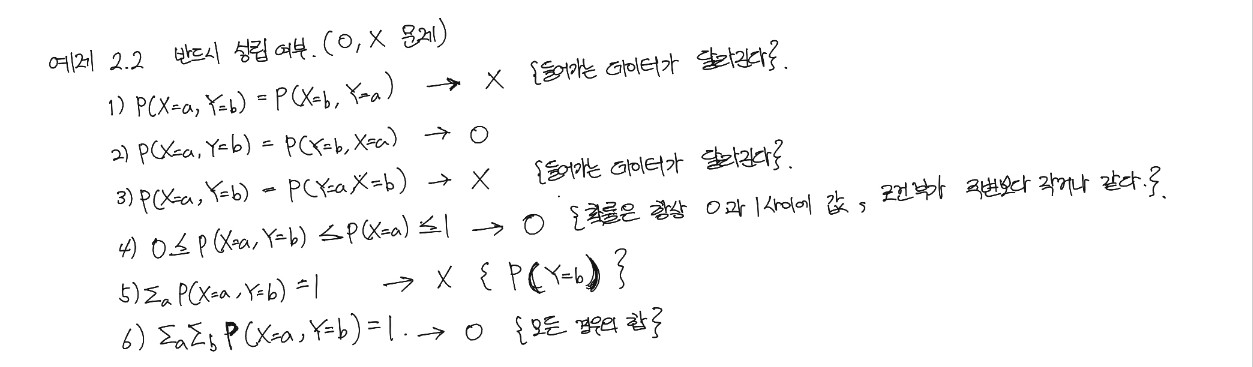 예제 2.2 반드시 성립 여부. (O, X 문제)
1) P(X=a, Y=b) = P(X=b, Y=a) → X {들어가는 데이터가 달라진다}.
2) P(X=a, Y=b) = P(Y=b, X=a) → O
3) P(X=a, Y=b) = P(Y=a, X=b) → X {들어가는 데이터가 달라진다}.
4) 0 ≤ P(X=a, Y=b) ≤ P(X=a) ≤ 1 → O {확률은 항상 0과 1사이에 값, 조건부가 작거나 같다.}.
5) Σₐ P(X=a, Y=b) = 1 → X { P(Y=b) }
6) ΣₐΣ_b P(X=a, Y=b) = 1. → O {모든 경우의 합}